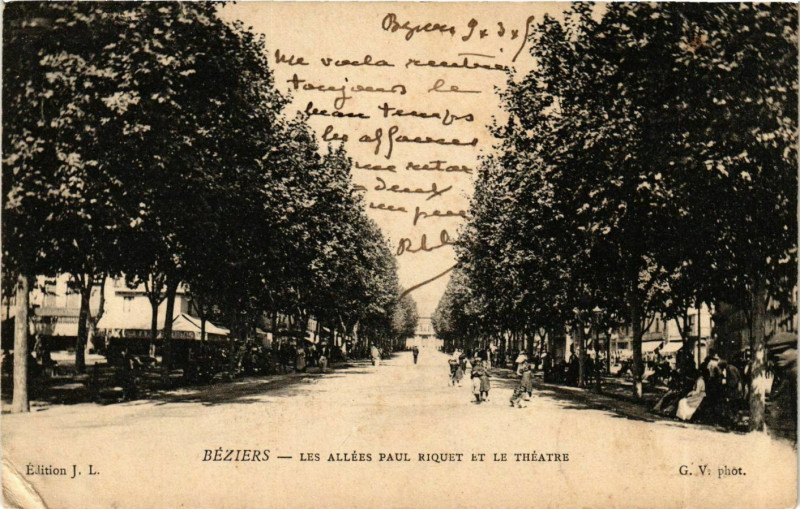 Béziers 9 x 3 x 5
Me voilà rentré
toujours le
beau temps
les affaires
me
un peu
BÉZIERS — LES ALLÉES PAUL RIQUET ET LE THÉATRE
Édition J. L.
G. V. phot.